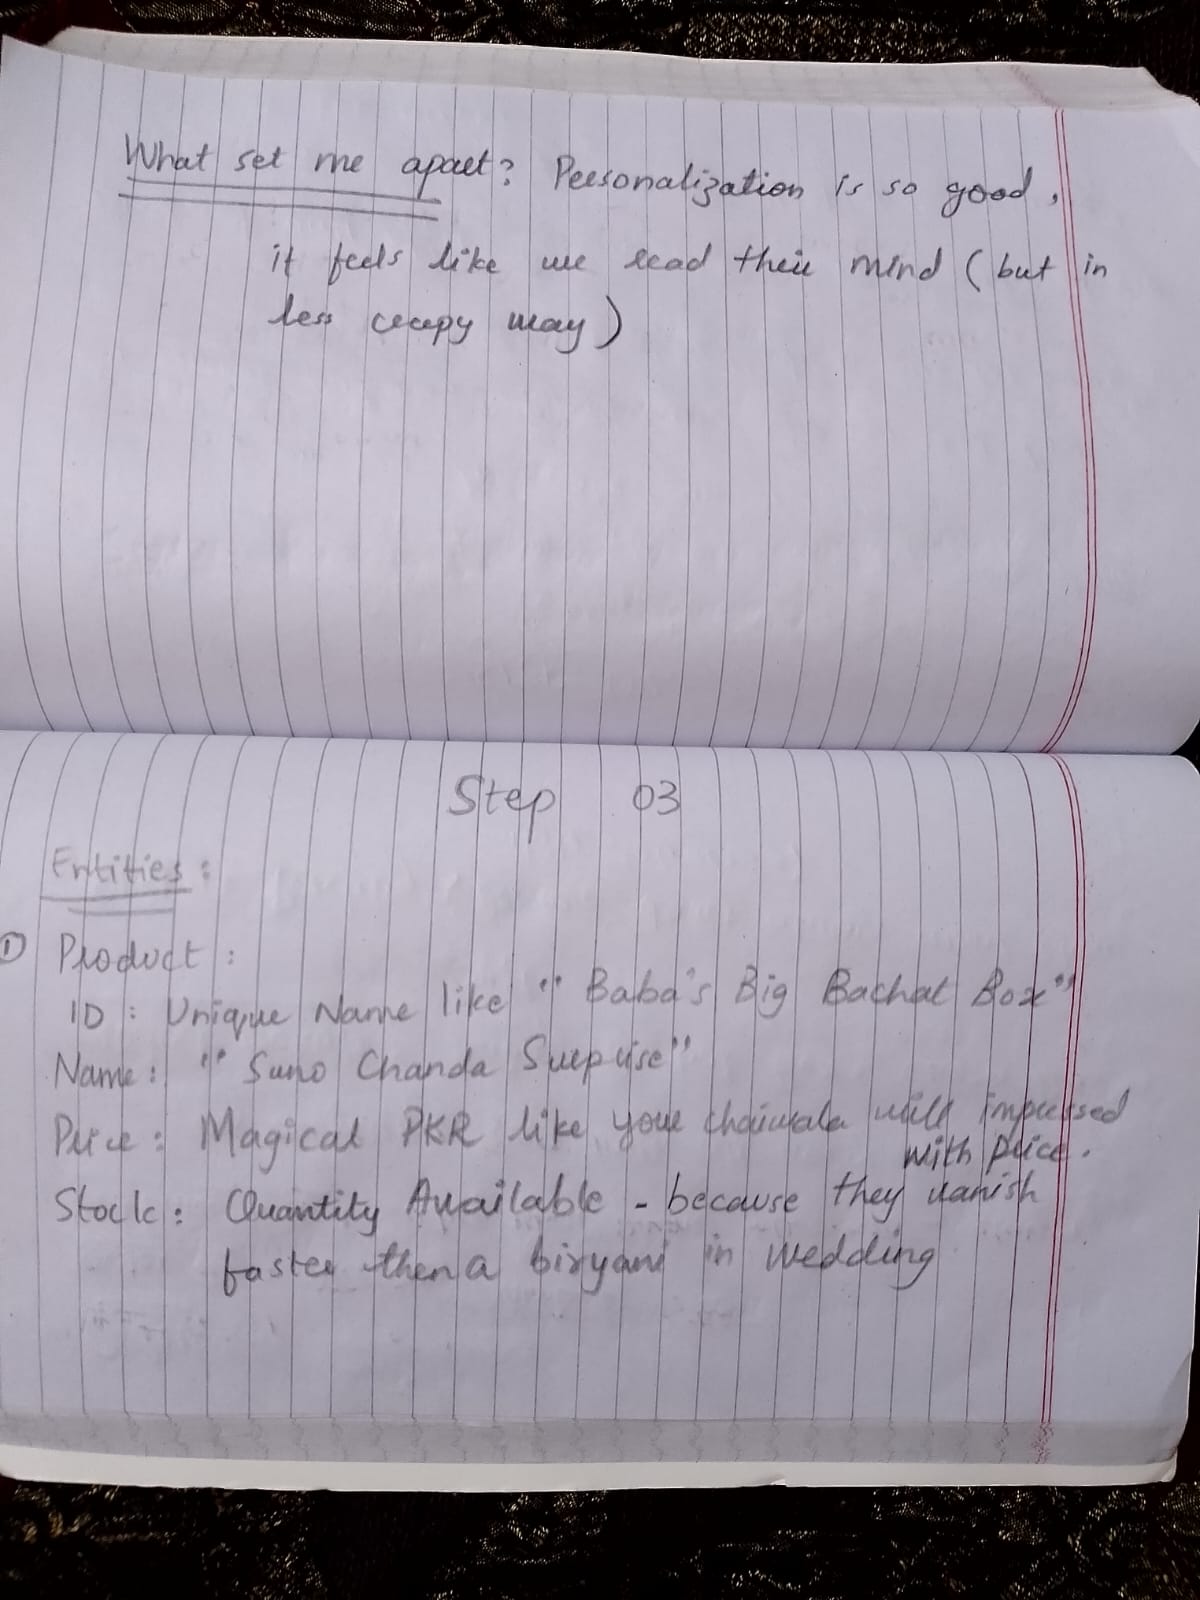 What set me apart? Personalization is so good,
it feels like we read their mind (but in
less creepy way)
Step 03
Entities:
① Product:
ID: Unique Name like "Baba's Big Bachat Box"
Name: "Suno Chanda Surprise"
Price: Magical PKR like your chaiwala will impressed
with price.
Stock: Quantity Available - because they vanish
faster then a biryani in wedding